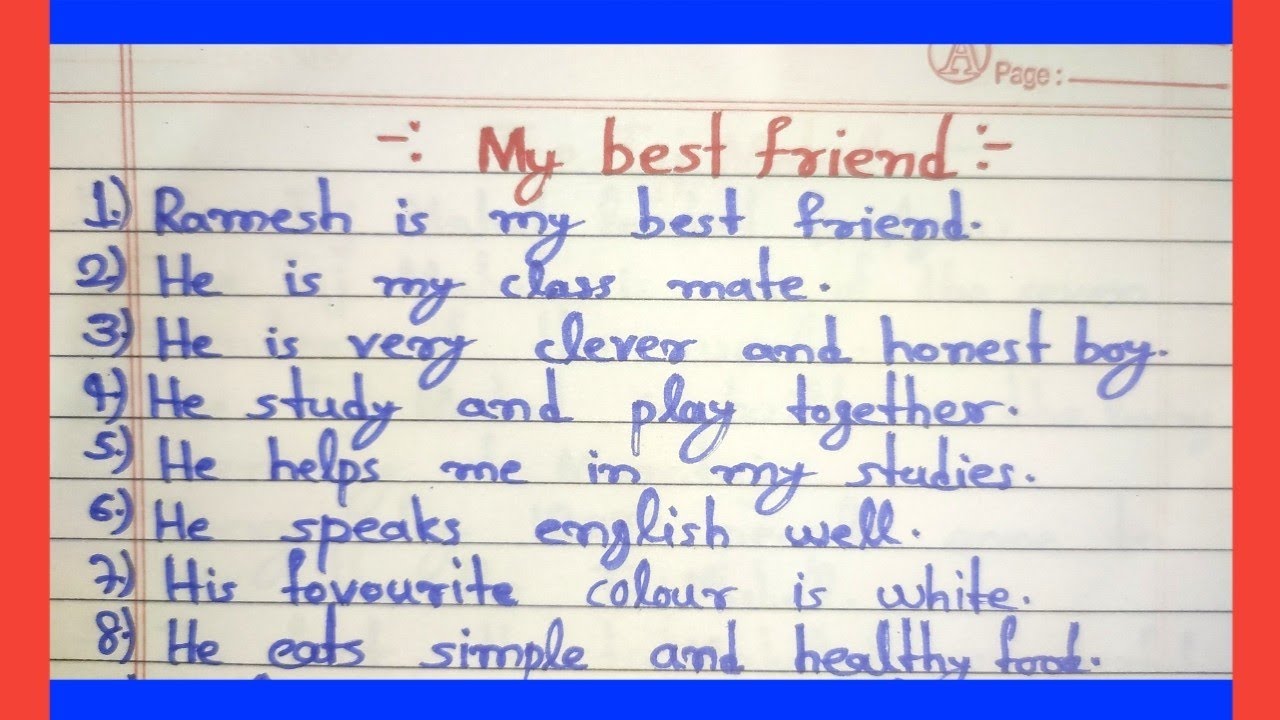 A Page:
-: My best friend :-
1.) Ramesh is my best friend.
2) He is my class mate.
3.) He is very clever and honest boy.
4.) He study and play together.
5.) He helps me in my studies.
6.) He speaks english well.
7.) His fovourite colour is white.
8.) He eats simple and healthy food.